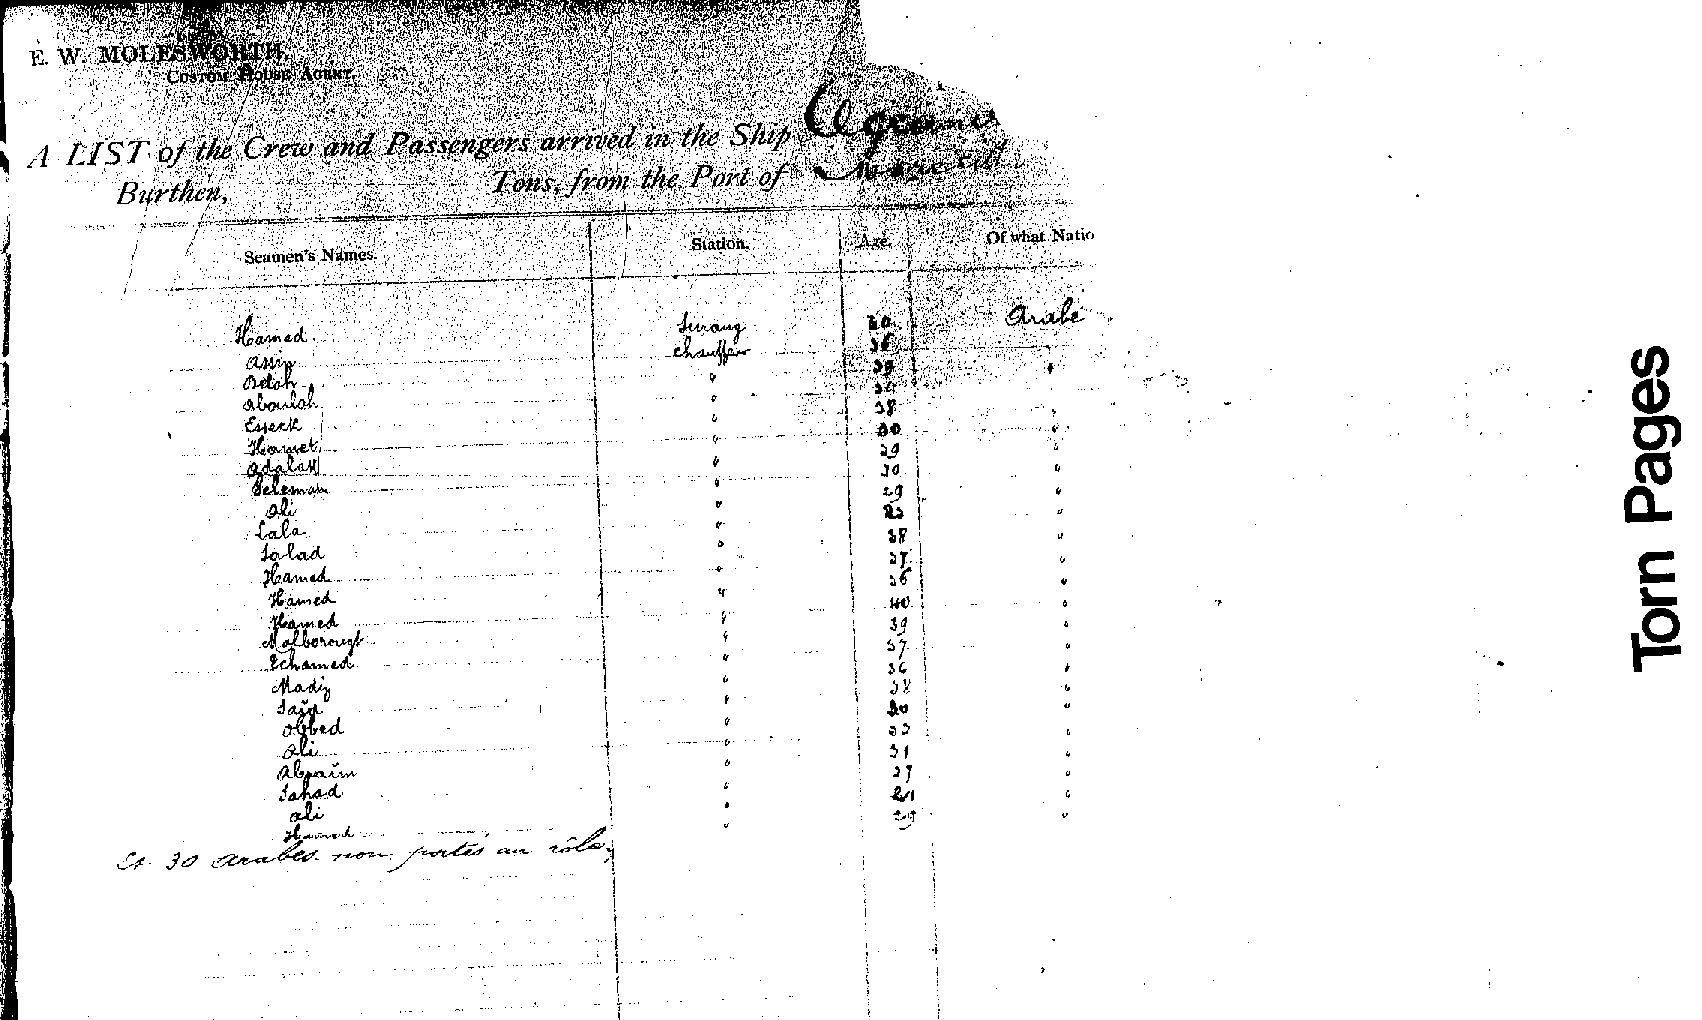 E. W. MOLESWORTH,
CUSTOM HOUSE AGENT.
A LIST of the Crew and Passengers arrived in the Ship
Burthen, Tons, from the Port of
Seamen's Names. Station. Age. Of what Natio
Hamed Serang 30 Arabe
Assip chauffeur 36
Betoh "
Aboulah "
Esseck " 38
Hamet " 30 "
Adalah " 29 "
Seleman " 30 "
Ali " 29 "
Lala " "
Salad " 38 "
Hamed " 37 "
Hamed " 36 "
Hamed " 40 "
Malborough " 39 "
Echamed " 37 "
Madiz " 36 "
Said " 38 "
Abbed " "
Ali " 33 "
Abraim " 31 "
Sahad " 27 "
Ali " "
Hamed " 29 "
Et 30 Arabes non portés au rôle,
Torn Pages